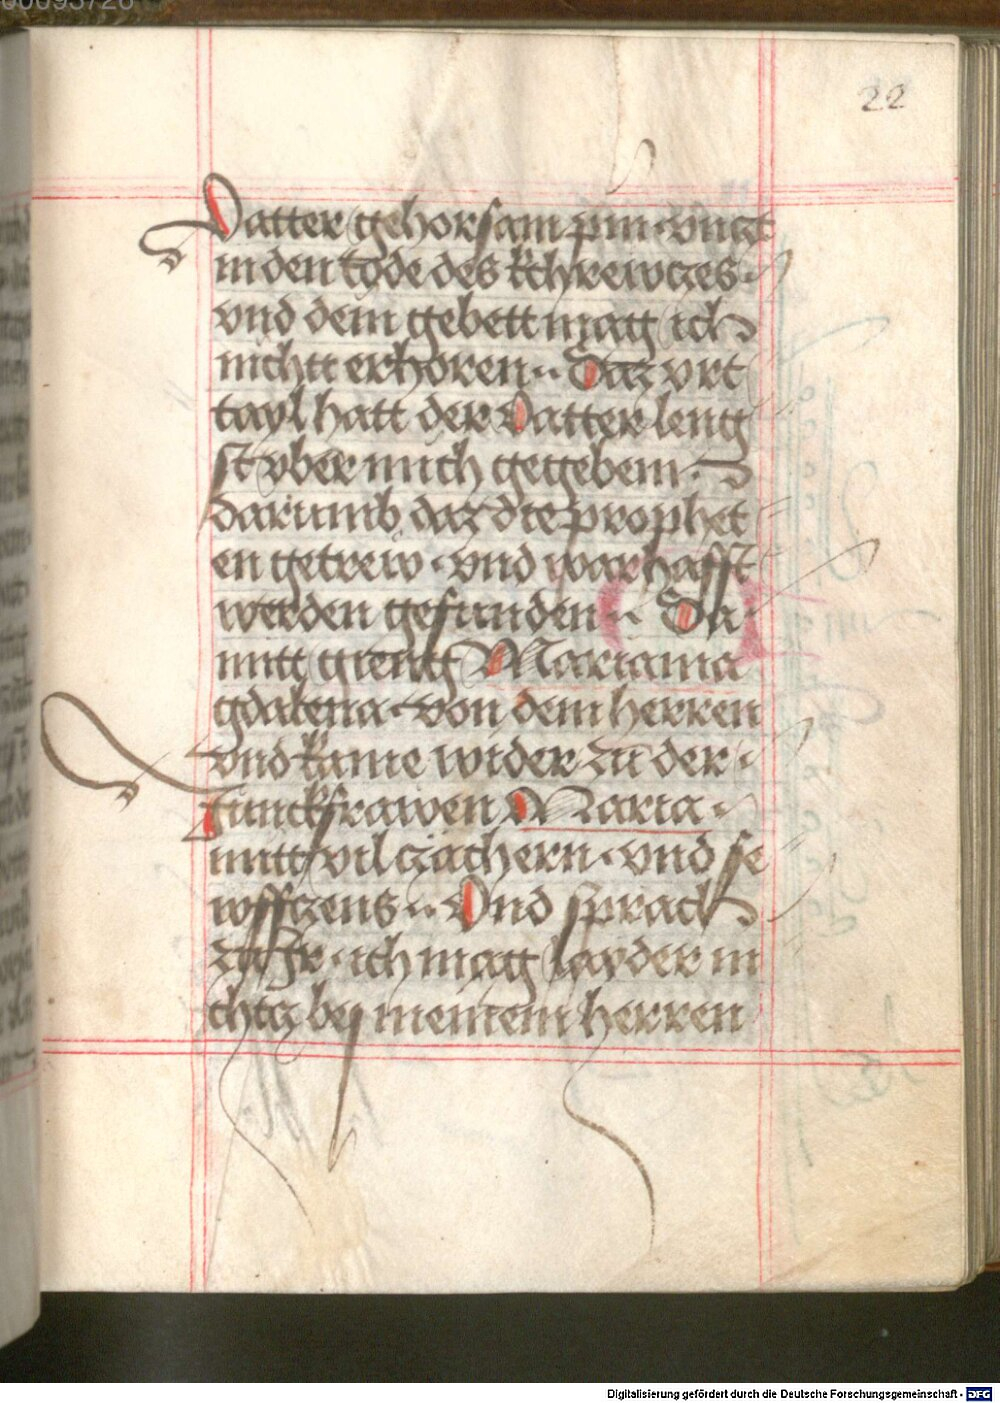 22
Vatter gehorsam pin · vnczt
in den tode des kchrewczes ·
vnd dem gebett mag ich
nichtt erhoren · Daz vrt
tayl hatt der Vatter leng
st vber mich gegebem ·
darumb daz die prophet
en getrew · vnd warhafft
werden gefunden · Da
mitt gieng Mariama
gdalena · von dem herren
vnd kame wider zu der ·
Junckfrawen Maria ·
mitt vil czächern · vnd se
wffczens · Vnd sprach
zu Jr · ich mag layder ni
chtz bej meinem herren
Digitalisierung gefördert durch die Deutsche Forschungsgemeinschaft - DFG